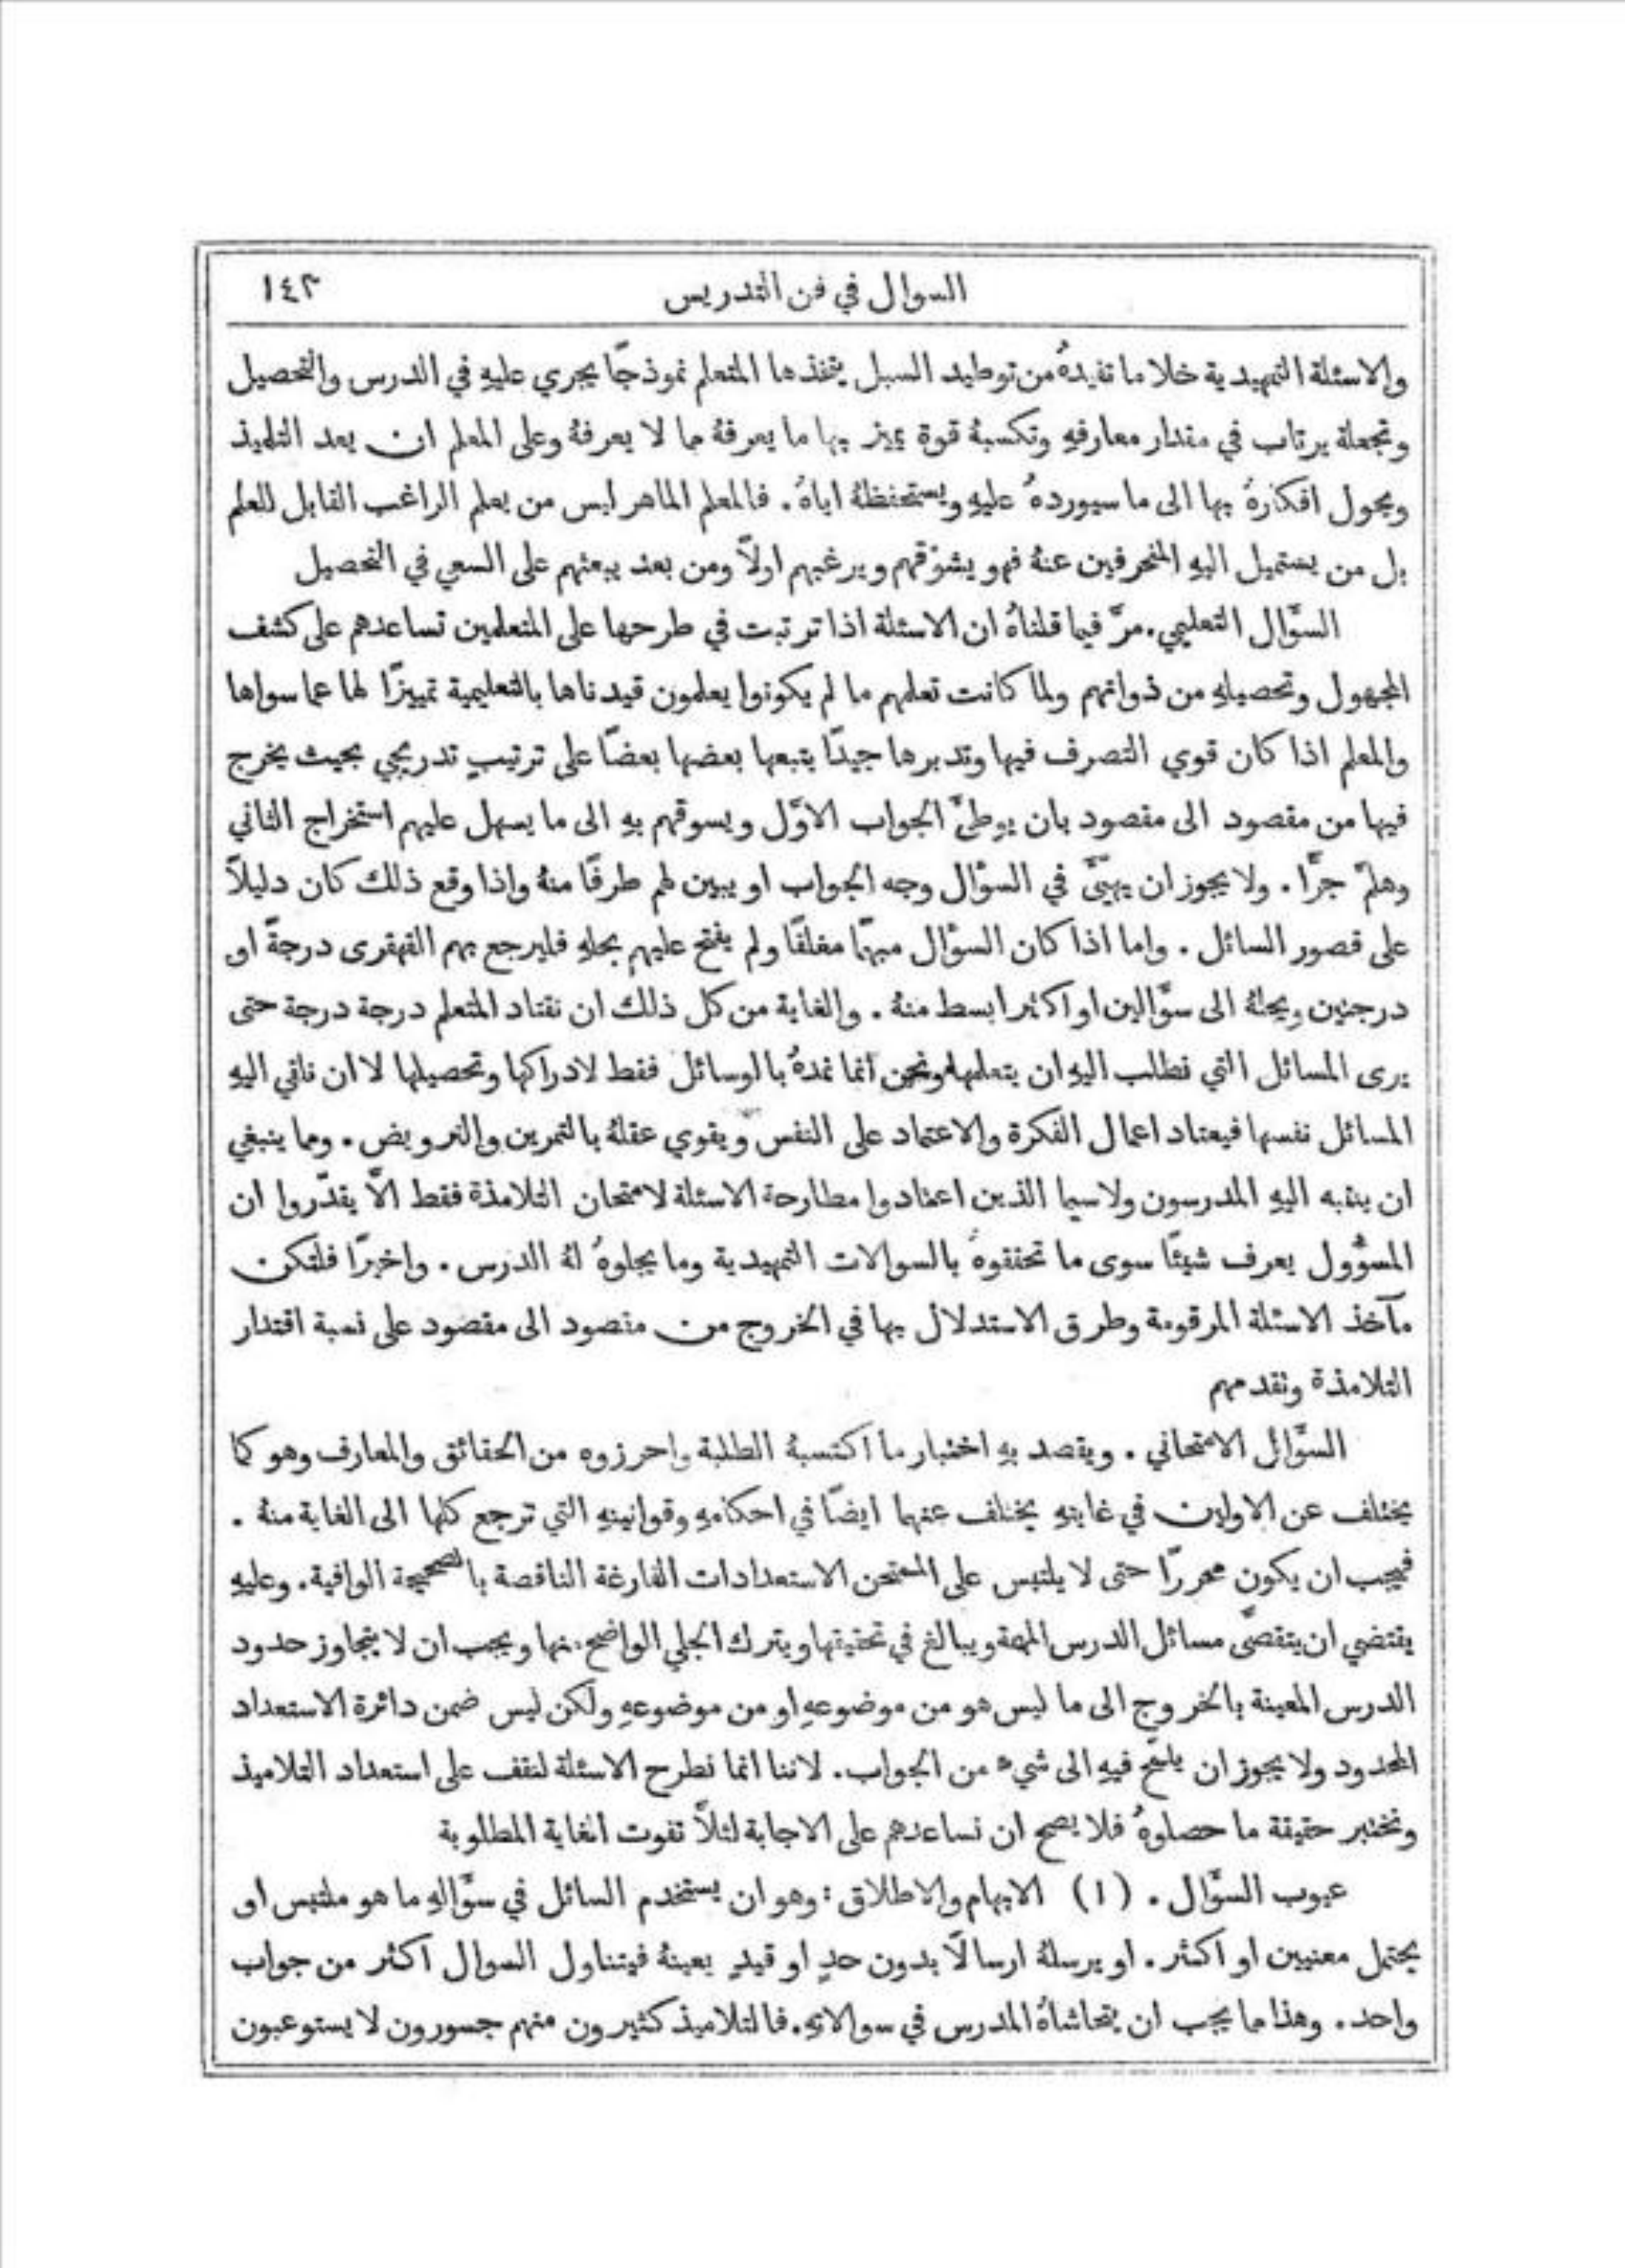 السوال في فن التدريس
١٤٣
والاسئلة التمهيدية خلا ما تفيدهُ من توطيد السبل يتخذها المتعلم نموذجًا يجري عليهِ في الدرس والتحصيل
وتجعلهُ يرتاب في مقدار معارفهِ وتكسبهُ قوة يميز بها ما يعرفهُ مما لا يعرفهُ وعلى المعلم ان يعد التلميذ
ويحول افكارهُ بها الى ما سيوردهُ عليهِ ويستحفظهُ اياهُ . فالمعلم الماهر ليس من يعلم الراغب القابل للعلم
بل من يستميل اليهِ المنحرفين عنهُ فهو يشوّقهم ويرغبهم اولاً ومن بعد يبعثهم على السعي في التحصيل
السوَّال التعليمي . مرَّ فيما قلناهُ ان الاسئلة اذا ترتبت في طرحها على المتعلمين تساعدهم على كشف
المجهول وتحصيلهِ من ذواتهم ولما كانت تعلمهم ما لم يكونوا يعلمون قيدناها بالتعليمية تمييزًا لها عما سواها
والمعلم اذا كان قوي التصرف فيها وتدبرها جيدًا يتبعها بعضها بعضًا على ترتيبٍ تدريجي بحيث يخرج
فيها من مقصود الى مقصود بان يوطئَ الجواب الاوّل ويسوقهم بهِ الى ما يسهل عليهم استخراج الثاني
وهلمَّ جرًّا . ولا يجوز ان يهيّئَ في السوَّال وجه الجواب او يبين لهم طرفًا منهُ واذا وقع ذلك كان دليلاً
على قصور السائل . واما اذا كان السوَّال مبهمًا مغلقًا ولم يفتح عليهم بحلهِ فليرجع بهم القهقرى درجةً او
درجتين ويحلهُ الى سوَّالين او اكثر ابسط منهُ . والغاية من كل ذلك ان نقتاد المتعلم درجة درجة حتى
يرى المسائل التي نطلب اليهِ ان يتعلمها ونحن انما نمدهُ بالوسائل فقط لادراكها وتحصيلها لا ان ناتي اليهِ
المسائل نفسها فيعتاد اعمال الفكرة والاعتماد على النفس ويقوي عقلهُ بالتمرين والترويض . ومما ينبغي
ان ينتبه اليهِ المدرسون ولاسيما الذين اعتادوا مطارحة الاسئلة لامتحان التلامذة فقط الَّا يقدّروا ان
المسوُّول يعرف شيئًا سوى ما تحققوهُ بالسوالات التمهيدية وما يجلوهُ لهُ الدرس . واخيرًا فلتكن
مآخذ الاسئلة المرقومة وطرق الاستدلال بها في الخروج من مقصود الى مقصود على نسبة اقتدار
التلامذة وتقدمهم
السوَّال الامتحاني . ويقصد بهِ اختبار ما اكتسبهُ الطلبة واحرزوه من الحقائق والمعارف وهو كما
يختلف عن الاولين في غايتهِ يختلف عنهما ايضًا في احكامهِ وقوانينهِ التي ترجع كلها الى الغاية منهُ .
فيجب ان يكون محررًا حتى لا يلتبس على الممتحن الاستعدادات الفارغة الناقصة بالصحيحة الوافية . وعليهِ
يقتضي ان يتقصَّى مسائل الدرس المهمة ويبالغ في تحقيقها ويترك الجلي الواضح منها ويجب ان لا يتجاوز حدود
الدرس المعينة بالخروج الى ما ليس هو من موضوعهِ او من موضوعهِ ولكن ليس ضمن دائرة الاستعداد
المحدود ولا يجوز ان يلمّح فيهِ الى شيءٍ من الجواب . لاننا انما نطرح الاسئلة لنقف على استعداد التلاميذ
ونختبر حقيقة ما حصلوهُ فلا يصح ان نساعدهم على الاجابة لئلاَّ تفوت الغاية المطلوبة
عيوب السوَّال . (١) الابهام والاطلاق : وهو ان يستخدم السائل في سوَّالهِ ما هو ملتبس او
يحتمل معنيين او اكثر . او يرسلهُ ارسالًا بدون حدٍ او قيدٍ بعينهُ فيتناول السوال اكثر من جواب
واحد . وهذا مما يجب ان يتحاشاهُ المدرس في سوالاتهِ . فالتلاميذ كثيرون منهم جسورون لا يستوعبون